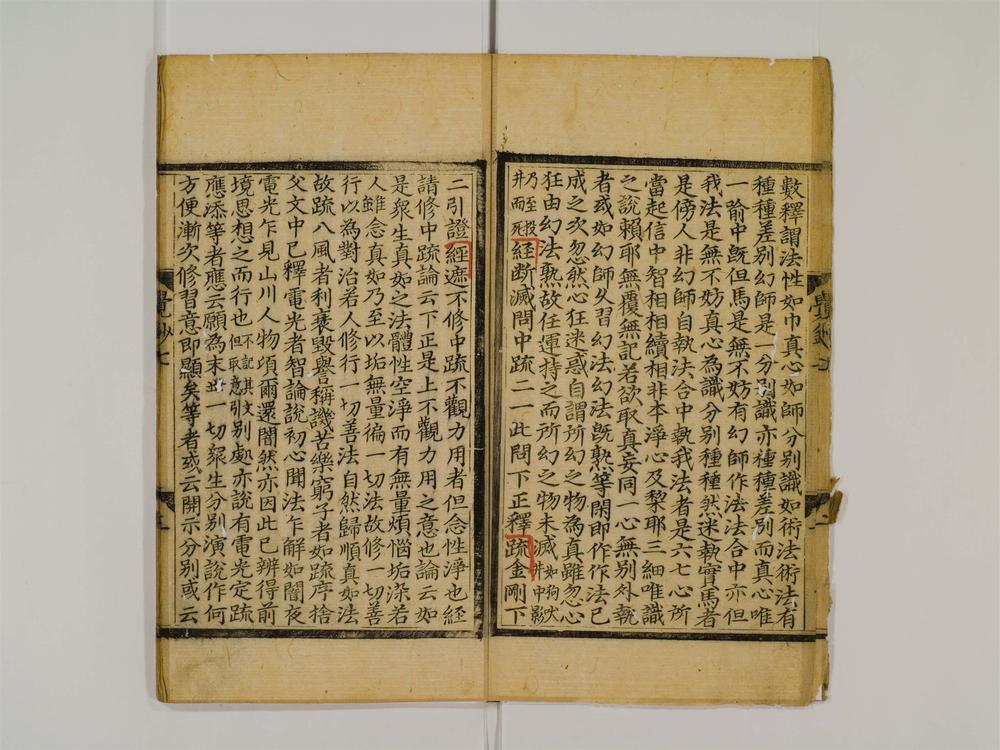 數釋謂法性如巾真心如師分別識如術法術法有
種種差別幻師是一分別識亦種種差別而真心唯
一喻中既但馬是無不妨有幻師作法法合中亦但
我法是無不妨真心為識分別種種然迷執實馬者
是傍人非幻師自執法合中執我法者是六七心所
當起信中智相相續相非本淨心及黎耶三細唯識
之說賴耶無覆無記若欲取真妄同一心無別外執
者或如幻師久習幻法幻法既熟等閑即作作法已
成之次忽然心狂迷惑自謂所幻之物為真雖忽心
狂由幻法熟故任運持之而所幻之物未滅如狗吠井中影
乃至投井而死經断滅問中疏二一此問下正釋疏金剛下
二引證經遮不修中疏不觀力用者但念性淨也經
請修中疏論云下正是上不觀力用之意也論云如
是衆生真如之法體性空淨而有無量煩惱垢染若
人雖念真如乃至以垢無量徧一切法故修一切善
行以為對治若人修行一切善法自然歸順真如法
故疏八風者利衰毀譽稱譏苦樂窮子者如疏序捨
父文中已釋電光者智論說初心聞法乍解如闇夜
電光乍見山川人物頃爾還闇然亦因此已辨得前
境思想之而行也不記其文但取意引別處亦說有電光定疏
應添等者應云願為末世一切衆生分別演說作何
方便漸次修習意即顯矣等者或云開示分別或云
覺鈔七
二